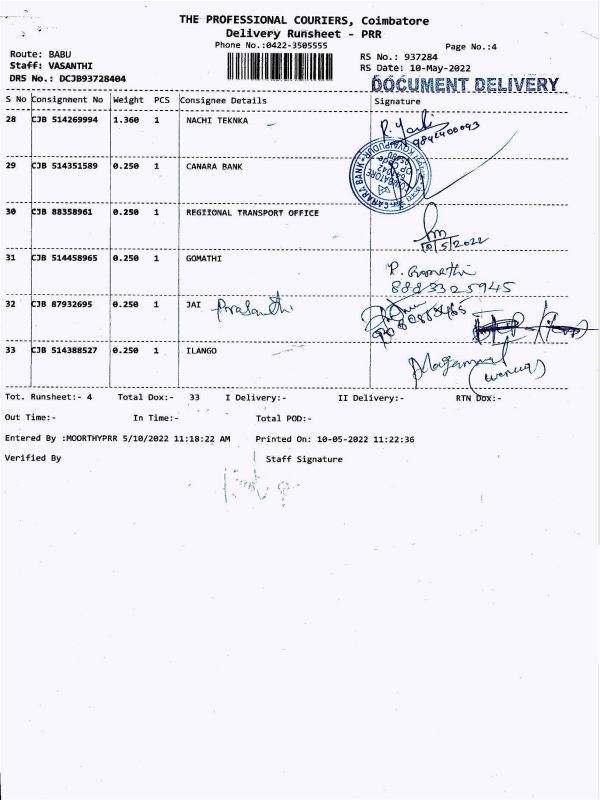 THE PROFESSIONAL COURIERS, Coimbatore
Delivery Runsheet - PRR
Phone No.:0422-3505555
Page No.:4
Route: BABU
RS No.: 937284
Staff: VASANTHI
RS Date: 10-May-2022
DRS No.: DCJB93728404
DOCUMENT DELIVERY
S No Consignment No Weight PCS Consignee Details Signature
28 CJB 514269994 1.360 1 NACHI TEKNKA
29 CJB 514351589 0.250 1 CANARA BANK
CANARA BANK
30 CJB 88358961 0.250 1 REGIIONAL TRANSPORT OFFICE
10/5/2022
31 CJB 514458965 0.250 1 GOMATHI P. Gomathi
8883325945
32 CJB 87932695 0.250 1 JAI Prasanthi
33 CJB 514388527 0.250 1 ILANGO
Tot. Runsheet:- 4 Total Dox:- 33 I Delivery:- II Delivery:- RTN Dox:-
Out Time:- In Time:- Total POD:-
Entered By :MOORTHYPRR 5/10/2022 11:18:22 AM Printed On: 10-05-2022 11:22:36
Verified By Staff Signature